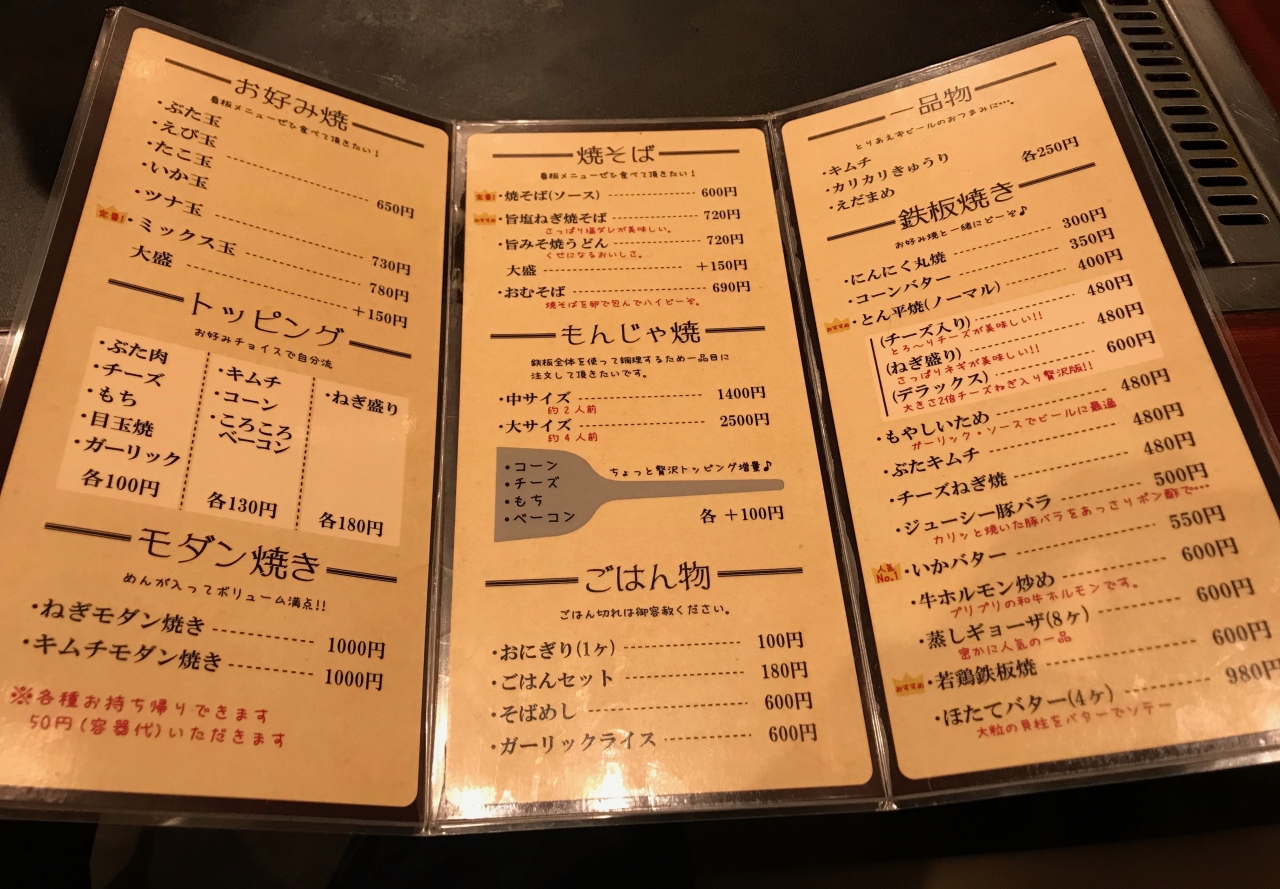 お好み焼
看板メニューぜひ食べて頂きたい！
・ぶた玉
・えび玉
・たこ玉
・いか玉 650円
・ツナ玉 730円
定番！ ・ミックス玉 780円
大盛 +150円
トッピング
お好みチョイスで自分流
・ぶた肉
・チーズ
・もち
・目玉焼
・ガーリック
各100円
・キムチ
・コーン
・ころころ
ベーコン
各130円
・ねぎ盛り
各180円
モダン焼き
めんが入ってボリューム満点!!
・ねぎモダン焼き 1000円
・キムチモダン焼き 1000円
※各種お持ち帰りできます
50円(容器代)いただきます
焼そば
看板メニューぜひ食べて頂きたい！
定番！ ・焼そば(ソース) 600円
おすすめ ・旨塩ねぎ焼そば 720円
さっぱり塩ダレが美味しい。
・旨みそ焼うどん 720円
くせになるおいしさ。
大盛 +150円
・おむそば 690円
焼そばを卵で包んでハイどーぞ。
もんじゃ焼
鉄板全体を使って調理するため一品目に
注文して頂きたいです。
・中サイズ 1400円
約2人前
・大サイズ 2500円
約4人前
・コーン
・チーズ
・もち
・ベーコン
ちょっと贅沢トッピング増量♪
各 +100円
ごはん物
ごはん切れは御容赦ください。
・おにぎり(1ヶ) 100円
・ごはんセット 180円
・そばめし 600円
・ガーリックライス 600円
一品物
とりあえずビールのおつまみに…。
・キムチ
・カリカリきゅうり 各250円
・えだまめ
鉄板焼き
お好み焼と一緒にどーぞ♪
・にんにく丸焼 300円
・コーンバター 350円
・とん平焼(ノーマル) 400円
おすすめ (チーズ入り) 480円
とろ〜りチーズが美味しい!!
(ねぎ盛り) 480円
さっぱりネギが美味しい!!
(デラックス) 600円
大きさ2倍チーズねぎ入り贅沢版!!
・もやしいため 480円
ガーリック・ソースでビールに最適
・ぶたキムチ 480円
・チーズねぎ焼 480円
・ジューシー豚バラ 500円
カリッと焼いた豚バラをあっさりポン酢で…
人気No.1 ・いかバター 550円
・牛ホルモン炒め 600円
プリプリの和牛ホルモンです。
・蒸しギョーザ(8ヶ) 600円
密かに人気の一品
おすすめ ・若鶏鉄板焼 600円
・ほたてバター(4ヶ) 980円
大粒の貝柱をバターでソテー